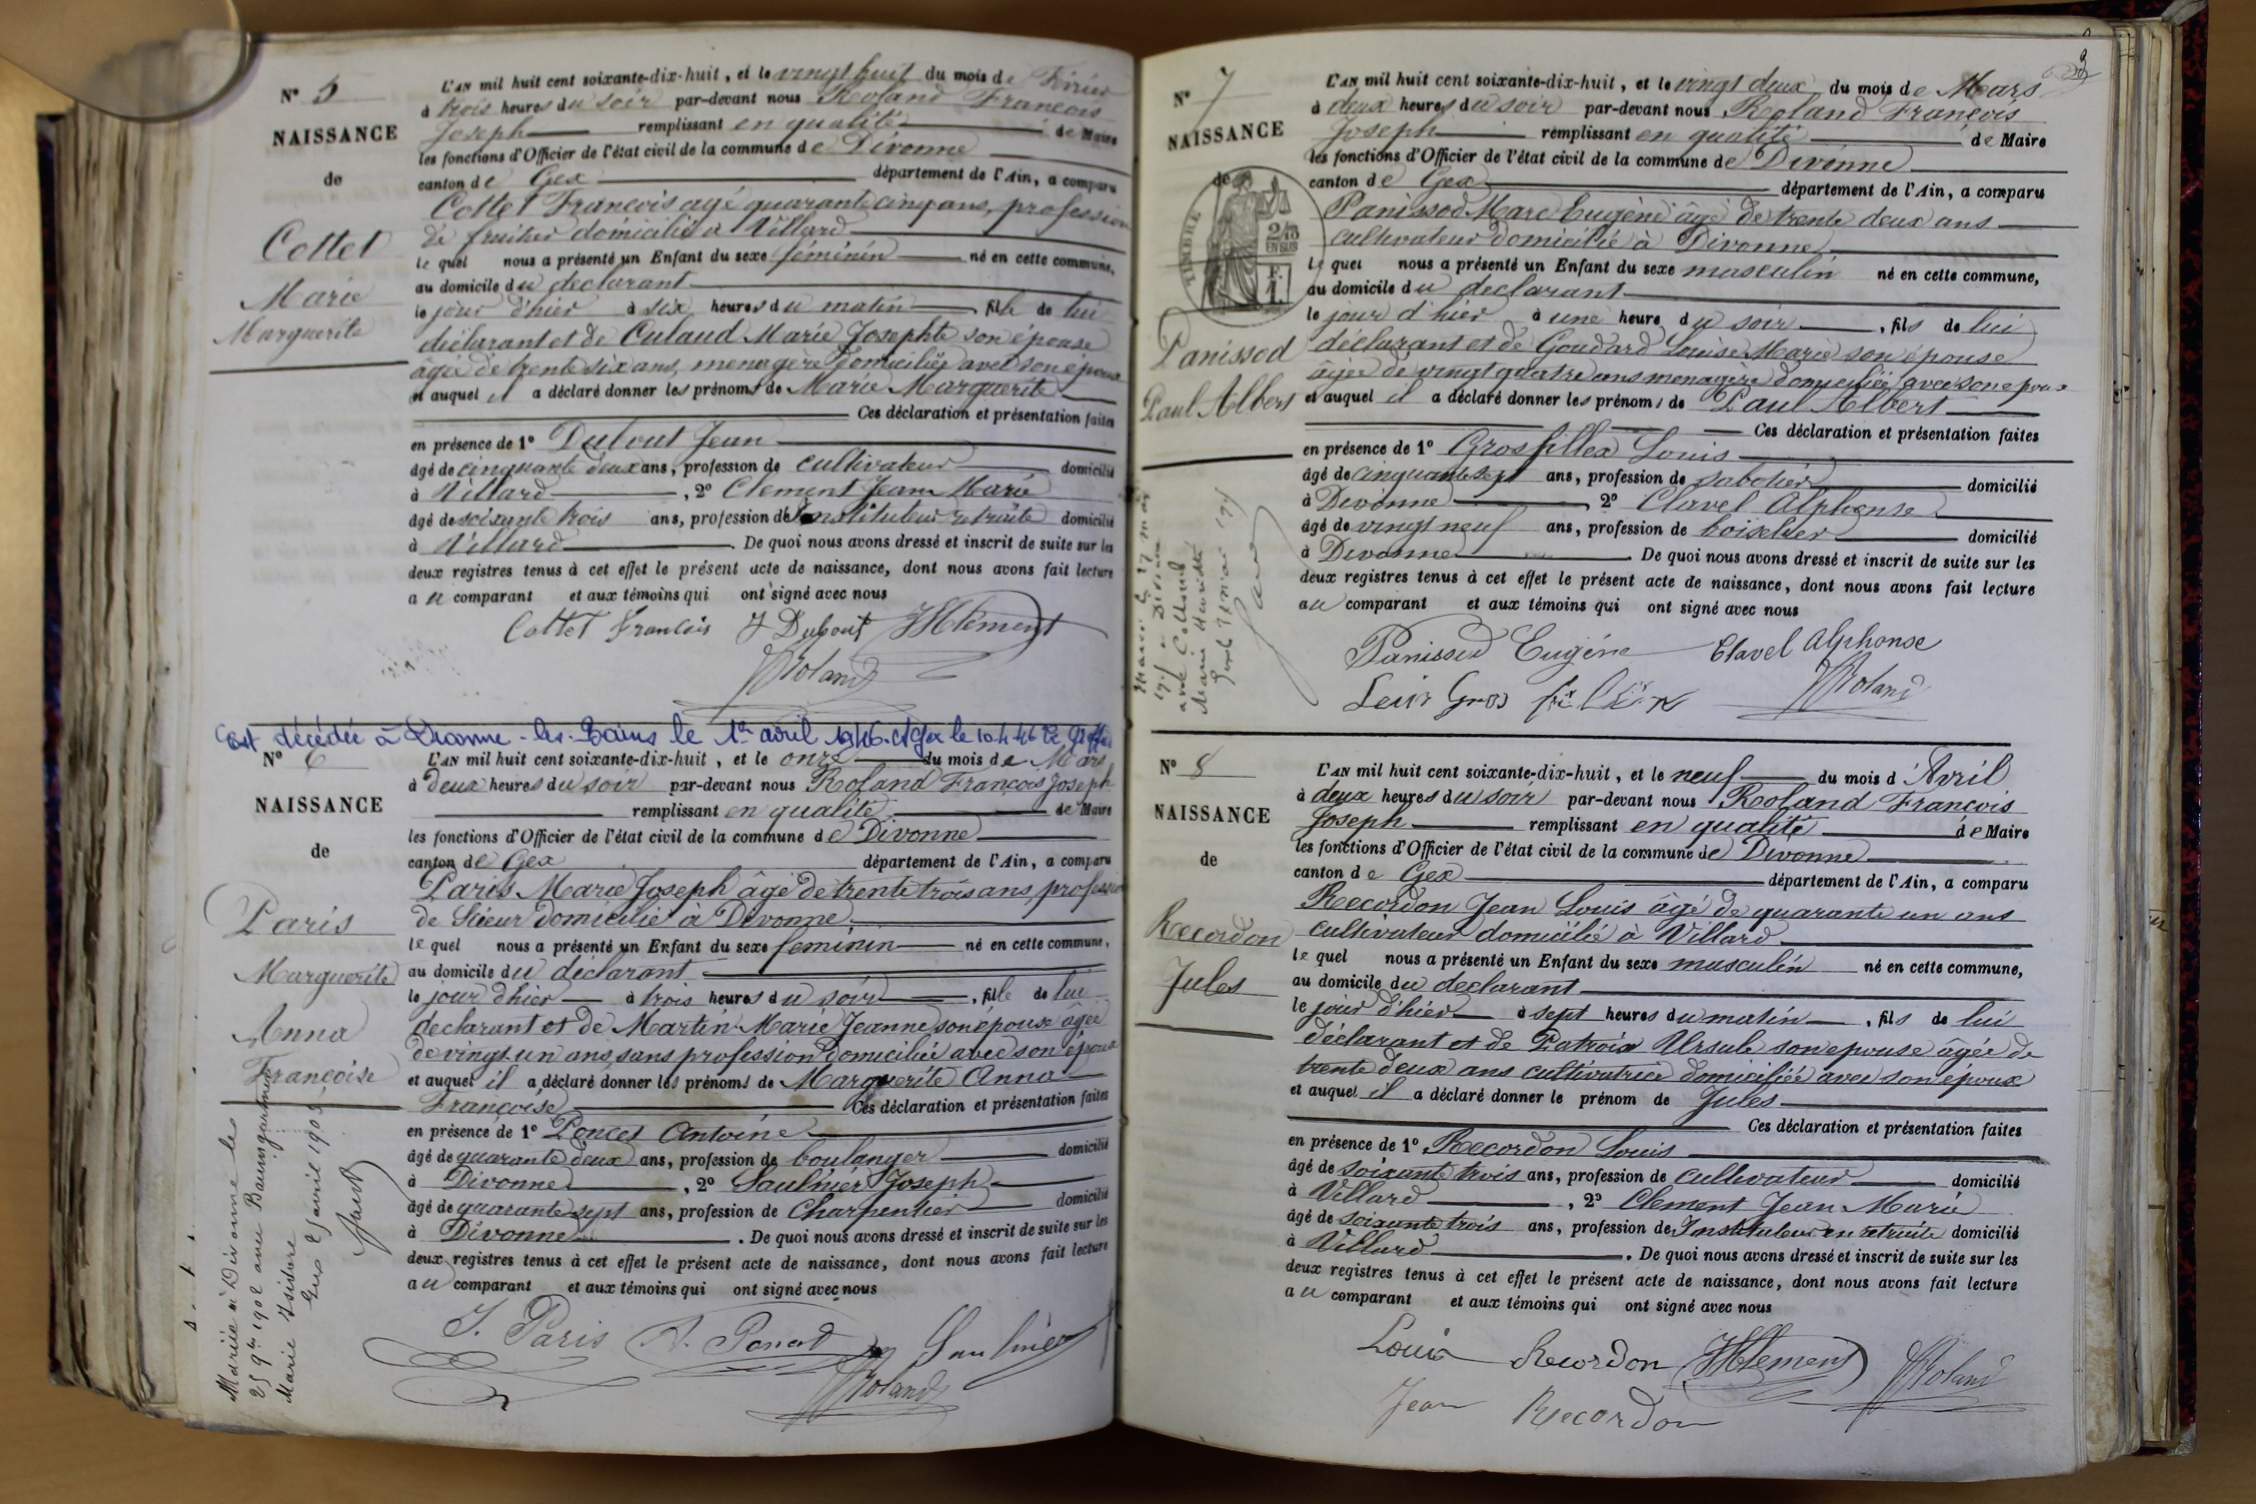 N° 5
NAISSANCE
de
Cottet
Marie
Marguerite
L'AN mil huit cent soixante-dix-huit, et le vingt huit du mois de Février
à trois heures du soir par-devant nous Roland François
Joseph remplissant en qualité de Maire
les fonctions d'Officier de l'état civil de la commune de Divonne
canton de Gex département de l'Ain, a comparu
Cottet François agé quarante cinq ans, profession
de fruitier domicilié à Villard
le quel nous a présenté un Enfant du sexe féminin né en cette commune,
au domicile du declarant
le jour d'hier à six heures du matin, fille de lui
déclarant et de Culaud Marie Josephte son épouse
âgée de trente six ans, menagère domiciliée avec son époux
et auquel il a déclaré donner les prénoms de Marie Marguerite
Ces déclaration et présentation faites
en présence de 1° Dufout Jean
âgé de cinquante deux ans, profession de cultivateur domicilié
à Villard, 2° Clement Jean Marie
âgé de soixante trois ans, profession de Instituteur retraité domicilié
à Villard. De quoi nous avons dressé et inscrit de suite sur les
deux registres tenus à cet effet le présent acte de naissance, dont nous avons fait lecture
au comparant et aux témoins qui ont signé avec nous
Cottet François J Dufout JClément
Roland
Est décédée à Divonne-les-Bains le 1er avril 1946. Gex le 10.4.46
N° 6
NAISSANCE
de
Paris
Marguerite
Anna
Françoise
Mariée à Divonne le
25 9bre 1902 avec Baumgartner
Marie Isidore
Gex 2 janvier 1903
L'AN mil huit cent soixante-dix-huit, et le onze du mois de Mars
à deux heures du soir par-devant nous Roland François Joseph
remplissant en qualité de Maire
les fonctions d'Officier de l'état civil de la commune de Divonne
canton de Gex département de l'Ain, a comparu
Paris Marie Joseph âgé de trente trois ans, profession
de Scieur domicilié à Divonne
le quel nous a présenté un Enfant du sexe féminin né en cette commune,
au domicile du déclarant
le jour d'hier à trois heures du soir, fille de lui
declarant et de Martin Marie Jeanne, son épouse âgée
de vingt-un ans, sans profession domiciliée avec son époux
et auquel il a déclaré donner les prénoms de Marguerite Anna
Françoise Ces déclaration et présentation faites
en présence de 1° Poncet Antoine
âgé de quarante deux ans, profession de boulanger domicilié
à Divonne, 2° Saulnier Joseph
âgé de quarante sept ans, profession de Charpentier domicilié
à Divonne. De quoi nous avons dressé et inscrit de suite sur les
deux registres tenus à cet effet le présent acte de naissance, dont nous avons fait lecture
au comparant et aux témoins qui ont signé avec nous
J. Paris A. Poncet Saulnier
Roland
N° 7
NAISSANCE
de
TIMBRE
2/10
EN SUS
F.
1.
Panissod
Paul Albert
L'AN mil huit cent soixante-dix-huit, et le vingt deux du mois de Mars
à deux heures du soir par-devant nous Roland François
Joseph remplissant en qualité de Maire
les fonctions d'Officier de l'état civil de la commune de Divonne
canton de Gex département de l'Ain, a comparu
Panissod Marc Eugène âgé de trente deux ans
cultivateur domicilié à Divonne
le quel nous a présenté un Enfant du sexe masculin né en cette commune,
au domicile du declarant
le jour d'hier à une heure du soir, fils de lui
déclarant et de Goudard Louise Marie son épouse
âgée de vingt quatre ans menagère domiciliée avec son époux
et auquel il a déclaré donner les prénoms de Paul Albert
Ces déclaration et présentation faites
en présence de 1° Grosfillex Louis
âgé de cinquante sept ans, profession de sabotier domicilié
à Divonne, 2° Clavel Alphonse
âgé de vingt neuf ans, profession de boiselier domicilié
à Divonne. De quoi nous avons dressé et inscrit de suite sur les
deux registres tenus à cet effet le présent acte de naissance, dont nous avons fait lecture
au comparant et aux témoins qui ont signé avec nous
Panissod Eugène Clavel Alphonse
Louis Gros fillex Roland
N° 8
NAISSANCE
de
Recordon
Jules
L'AN mil huit cent soixante-dix-huit, et le neuf du mois d'Avril
à deux heures du soir par-devant nous Roland François
Joseph remplissant en qualité de Maire
les fonctions d'Officier de l'état civil de la commune de Divonne
canton de Gex département de l'Ain, a comparu
Recordon Jean Louis âgé de quarante un ans
cultivateur domicilié à Villard
le quel nous a présenté un Enfant du sexe masculin né en cette commune,
au domicile du declarant
le jour d'hier à sept heures du matin, fils de lui
déclarant et de Patroix Ursule son epouse âgée de
trente deux ans cultivatrice domiciliée avec son époux
et auquel il a déclaré donner le prénom de Jules
Ces déclaration et présentation faites
en présence de 1° Recordon Louis
âgé de soixante trois ans, profession de cultivateur domicilié
à Villard, 2° Clement Jean Marie
âgé de soixante trois ans, profession de Instituteur en retraite domicilié
à Villard. De quoi nous avons dressé et inscrit de suite sur les
deux registres tenus à cet effet le présent acte de naissance, dont nous avons fait lecture
au comparant et aux témoins qui ont signé avec nous
Louis Recordon JClement Roland
Jean Recordon